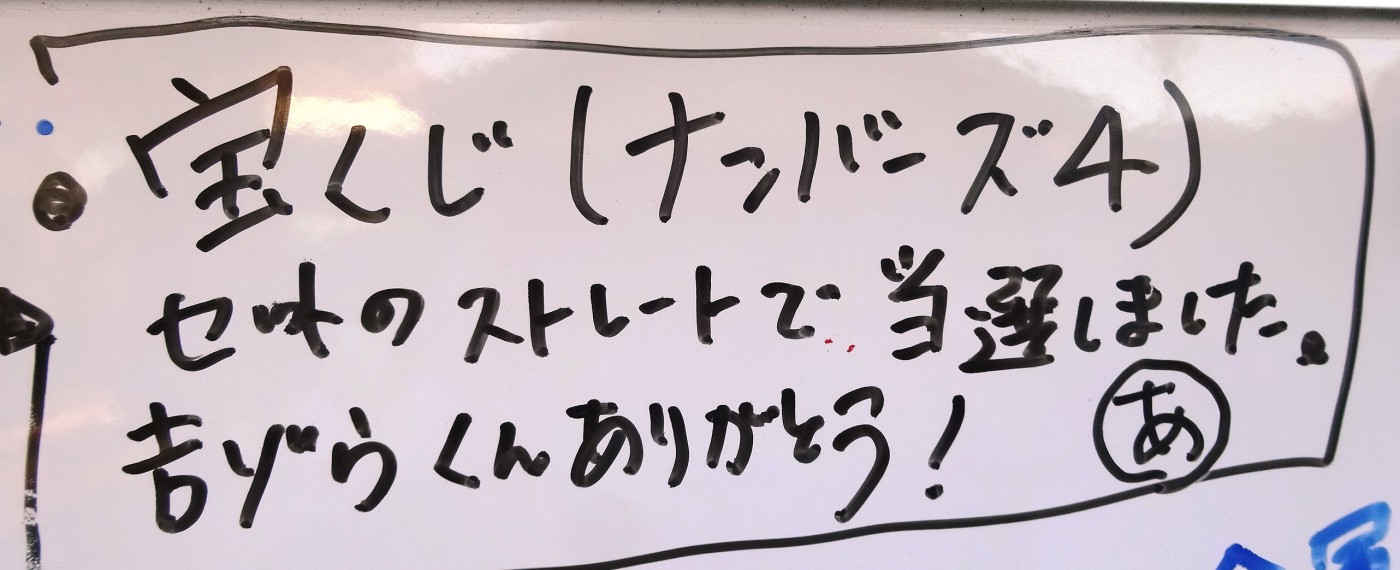 宝くじ(ナンバーズ4)
セットのストレートで当選しました。
吉ゾウくんありがとう! あ